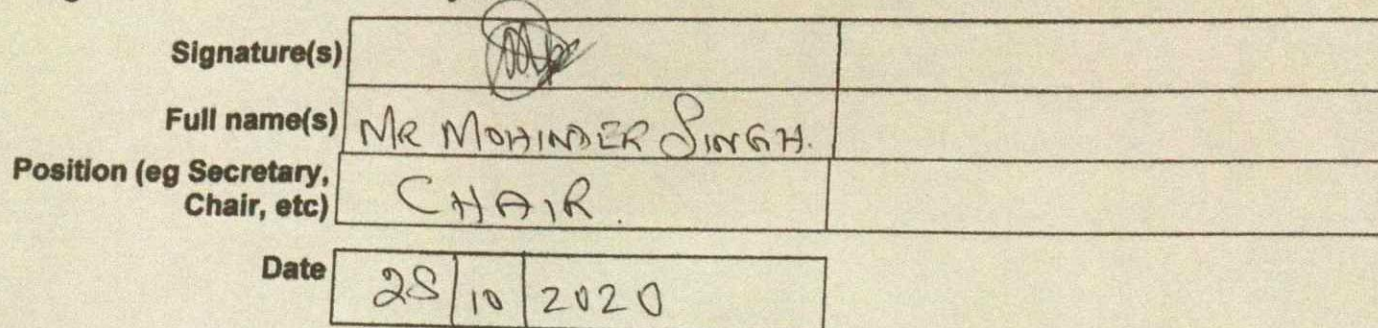 Signature(s)
Full name(s) MR MOHINDER SINGH.
Position (eg Secretary,
Chair, etc) CHAIR.
Date 28 10 2020